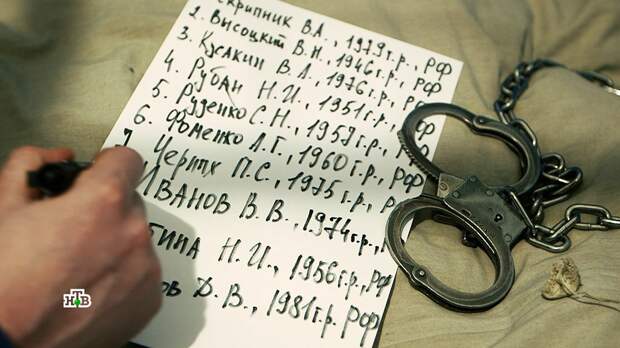 Скрипник В.А., 1979г.р., РФ
2. Высоцкий В.И., 1946г.р., РФ
3. Кусакин В.Л., 1976г.р., РФ
4. Рубан Н.И., 1951г.р., РФ
5. Руденко С.Н., 1957г.р., РФ
6. Фоменко Л.Г., 1960г.р., РФ
7. Черпих П.С., 1975г.р., РФ
ИВАНОВ В.В., 1974г.р.,
Н.И., 1956г.р., РФ
Д.В., 1981г.р. РФ
НТВ